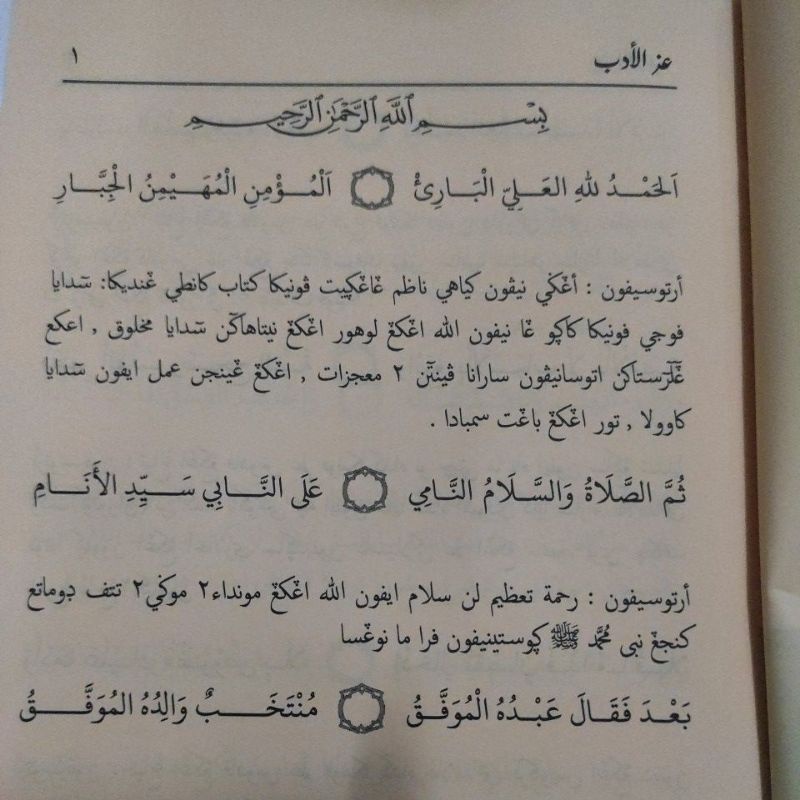 عز الأدب ١
بِسْمِ ٱللَّهِ ٱلرَّحْمَٰنِ ٱلرَّحِيمِ
اَلحَمْدُ للهِ العَلِيِّ الْبَارِئْ ۝ اَلْمُؤْمِنِ الْمُهَيْمِنُ الْجِبَّارِ
أرتوسيفون : أڠكٓي نيڤون كياهي ناظم ڠاڠڮيت ڤونيكا كتاب كانطي ڠنديكا: سٓدايا
فوجي فونيكا كاڮو ڠا نيفون الله اڠكڠ لوهور اڠكڠ نيتاهاكٓن سٓدايا مخلوق , اعكع
ڠلٓرٓستاكن اتوسانيڤون سارانا ڤينتٓن ٢ معجزات , اڠكڠ ڠينجن عمل ايفون سٓدايا
كاوولا , تور اڠكڠ باڠت سمبادا .
ثُمَّ الصَّلَاةُ وَالسَّلَامُ النَّامِي ۝ عَلَى النَّابِي سَيِّدِ الأَنَامِ
أرتوسيفون : رحمة تعظيم لن سلام ايفون الله اڠكڠ مونداء٢ موكٓي٢ تتف دوماتڠ
كنجڠ نبى مُحَمَّد ﷺ ڮوستينيفون فرا ما نوڠسا
بَعْدَ فَقَالَ عَبْدُهُ الْمُوَفَّقُ ۝ مُنْتَخَبٌ وَالِدُهُ المُوَفَّقُ